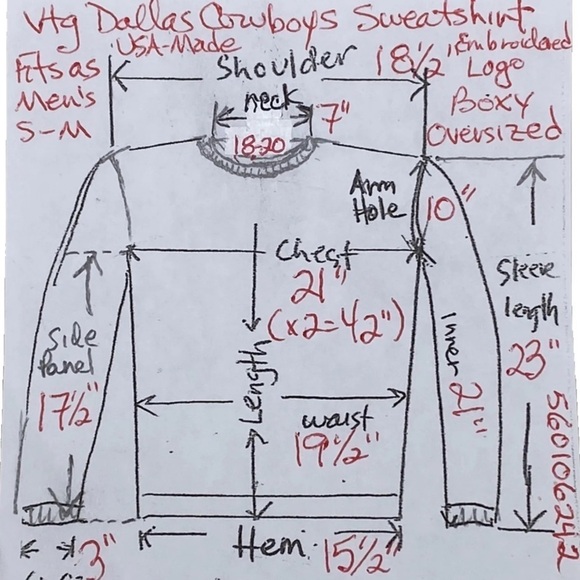 Vtg Dallas Cowboys Sweatshirt
USA-Made
Fits as
Men's
S-M
Shoulder 18½"
Embroidered
Logo
Boxy
Oversized
neck 7"
18-20
Arm
Hole
10"
Chest
21"
(x2=42")
Side
Panel
17½"
Length
waist
19½"
Inner 21"
Sleeve
length
23"
560106242
3"
Hem 15½"